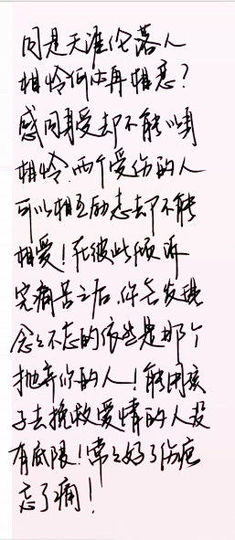 同是天涯伦落人
相怜何必再相恋？
感同身受却不能以真
相怜.两个受伤的人
可以相互励志却不能
相爱！在彼此倾诉
完痛苦之后,你会发现
念念不忘的依然是那个
抛弃你的人！能用孩
子去挽救爱情的人没
有底限！常常好了伤疤
忘了痛！